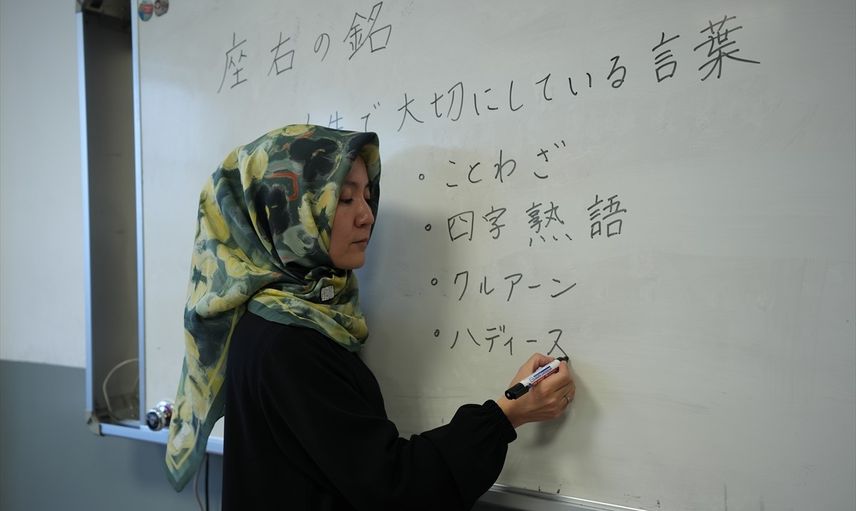 座右の銘
人生で大切にしている言葉
・ことわざ
・四字熟語
・クルアーン
・ハディース